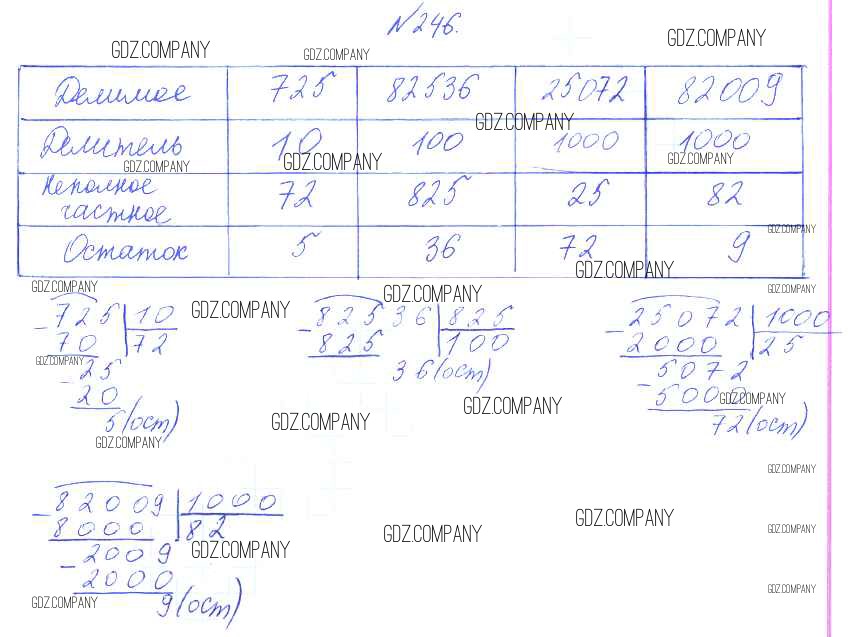 №246.
GDZ.COMPANY GDZ.COMPANY GDZ.COMPANY
Делимое 725 82536 25072 82009
GDZ.COMPANY
Делитель 10 100 1000 1000
GDZ.COMPANY GDZ.COMPANY GDZ.COMPANY
Неполное частное 72 825 25 82
GDZ.COMPANY
Остаток 5 36 72 9
GDZ.COMPANY
GDZ.COMPANY GDZ.COMPANY GDZ.COMPANY
- 725 | 10 GDZ.COMPANY - 82536 | 825 - 25072 | 1000
70 72 825 100 2000 25
GDZ.COMPANY - 25 36(ост) - 5072
20 5000 GDZ.COMPANY
5(ост) GDZ.COMPANY GDZ.COMPANY 72(ост)
GDZ.COMPANY
GDZ.COMPANY
- 82009 | 1000
8000 82 GDZ.COMPANY GDZ.COMPANY GDZ.COMPANY
- 2009 GDZ.COMPANY
2000
GDZ.COMPANY 9(ост) GDZ.COMPANY